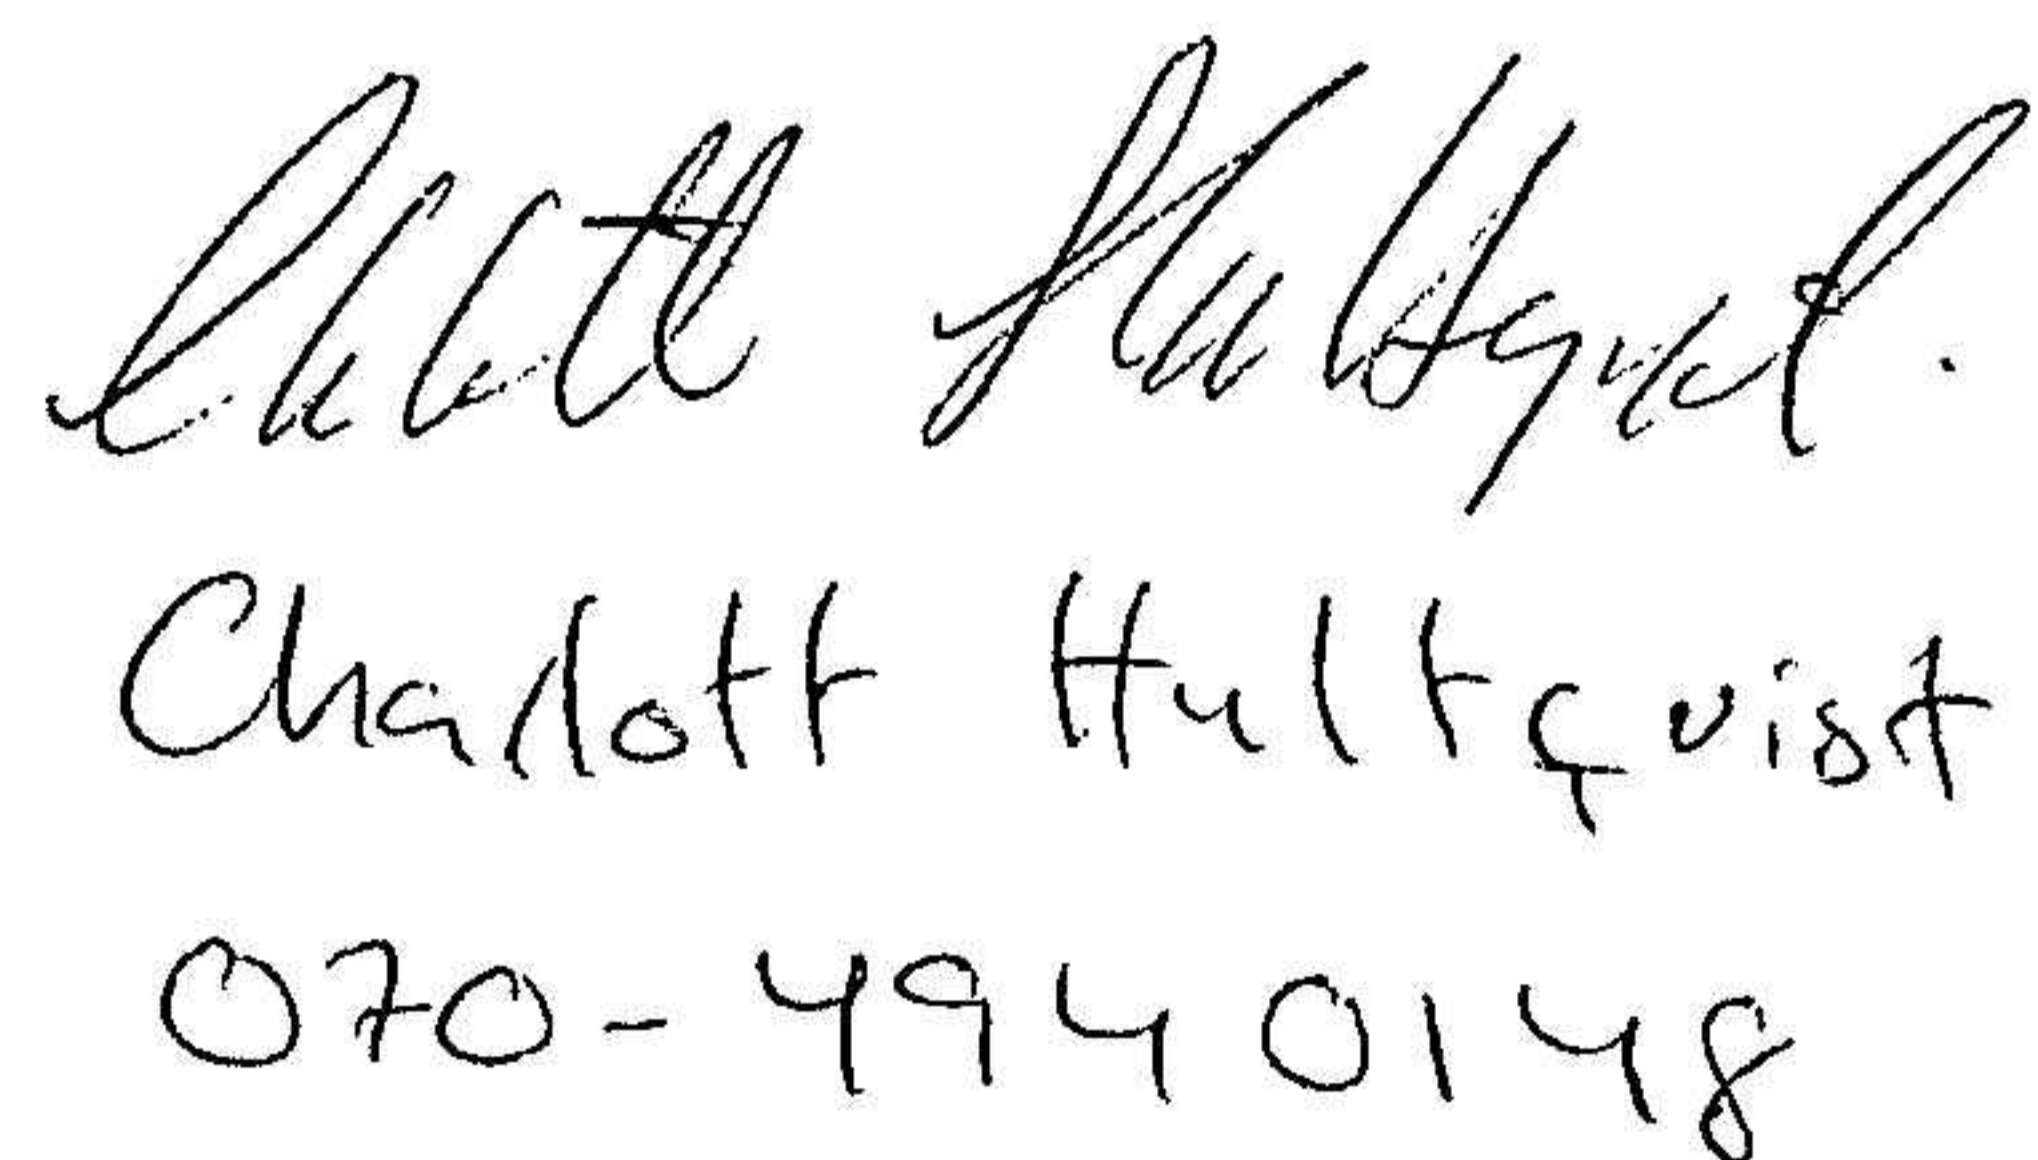 Charlott Hultqvist.
Charlott Hultqvist
070-494 0148